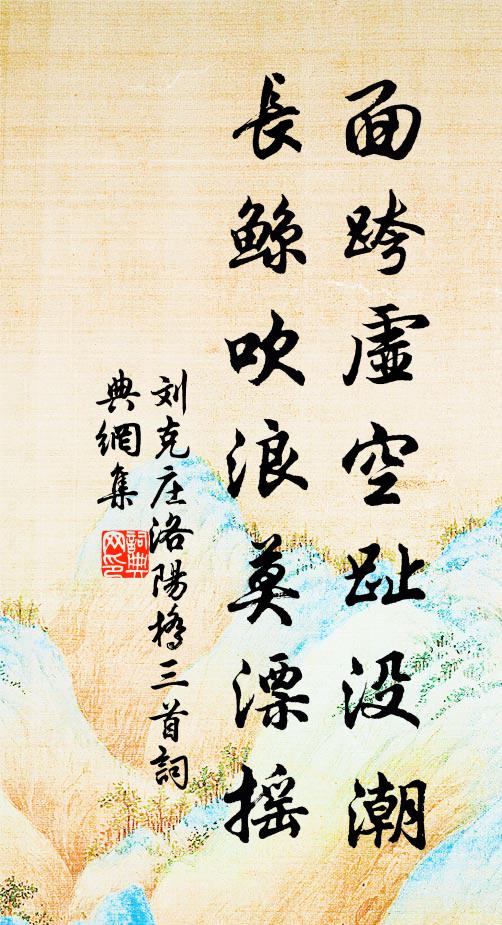 面跨虛空趾没潮
長鲸吹浪莫漂摇
刘克庄洛陽橋三首詞
典網集
詞典
网印